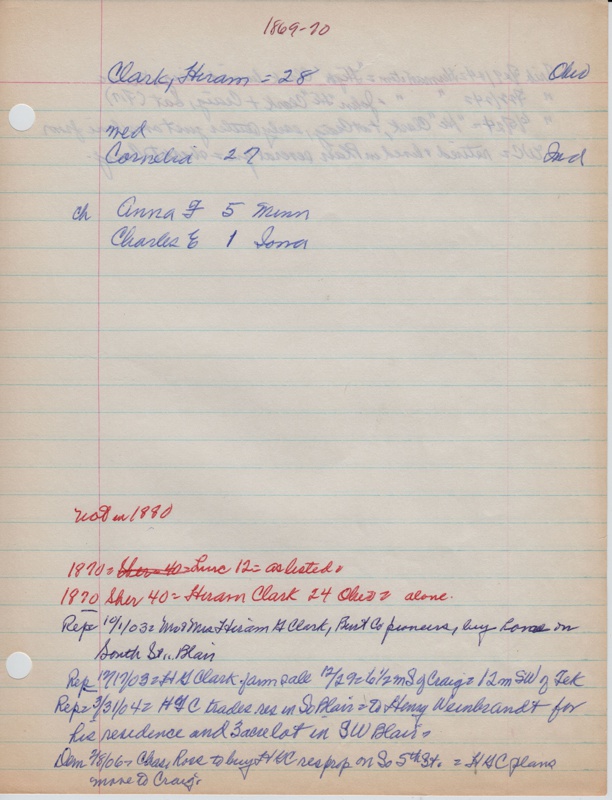 1869-70
Clark, Hiram = 28 Ohio
med
Cornelia 27 Ind
ch Anna F 5 Minn
Charles E 1 Iowa
not in 1880
1870 = Sher = 40 = Linc 12 = as listed =
1870 Sher 40 = Hiram Clark 24 Ohio = alone.
Rep = 10/1/03 = Mr & Mrs Hiram G Clark, Burt Co pioneers, buy home on
South St., Blair
Rep 12/17/03 = H G Clark farm sale 12/29 = 6 1/2 m S of Craig = 12 m SW of Tek
Rep = 3/31/04 = H G C trades res in So Blair = to Henry Weinbrandt for
his residence and 3 acre lot in SW Blair =
Dem 2/8/06 = Chas. Rose to buy H G C res prop on So 5th St. = H G C plans
move to Craig.